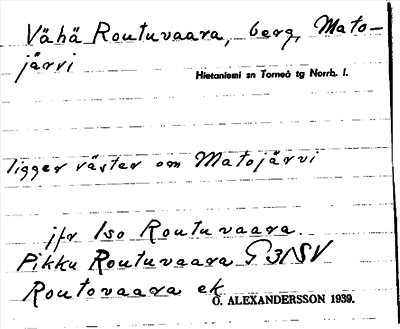 Vähä Routuvaara, berg, Mato-
järvi
Hietaniemi sn Torneå tg Norrb. l.
ligger väster om Matojärvi
jfr Iso Routuvaara.
Pikku Routuvaara
Routovaara ek
O. ALEXANDERSSON 1939.